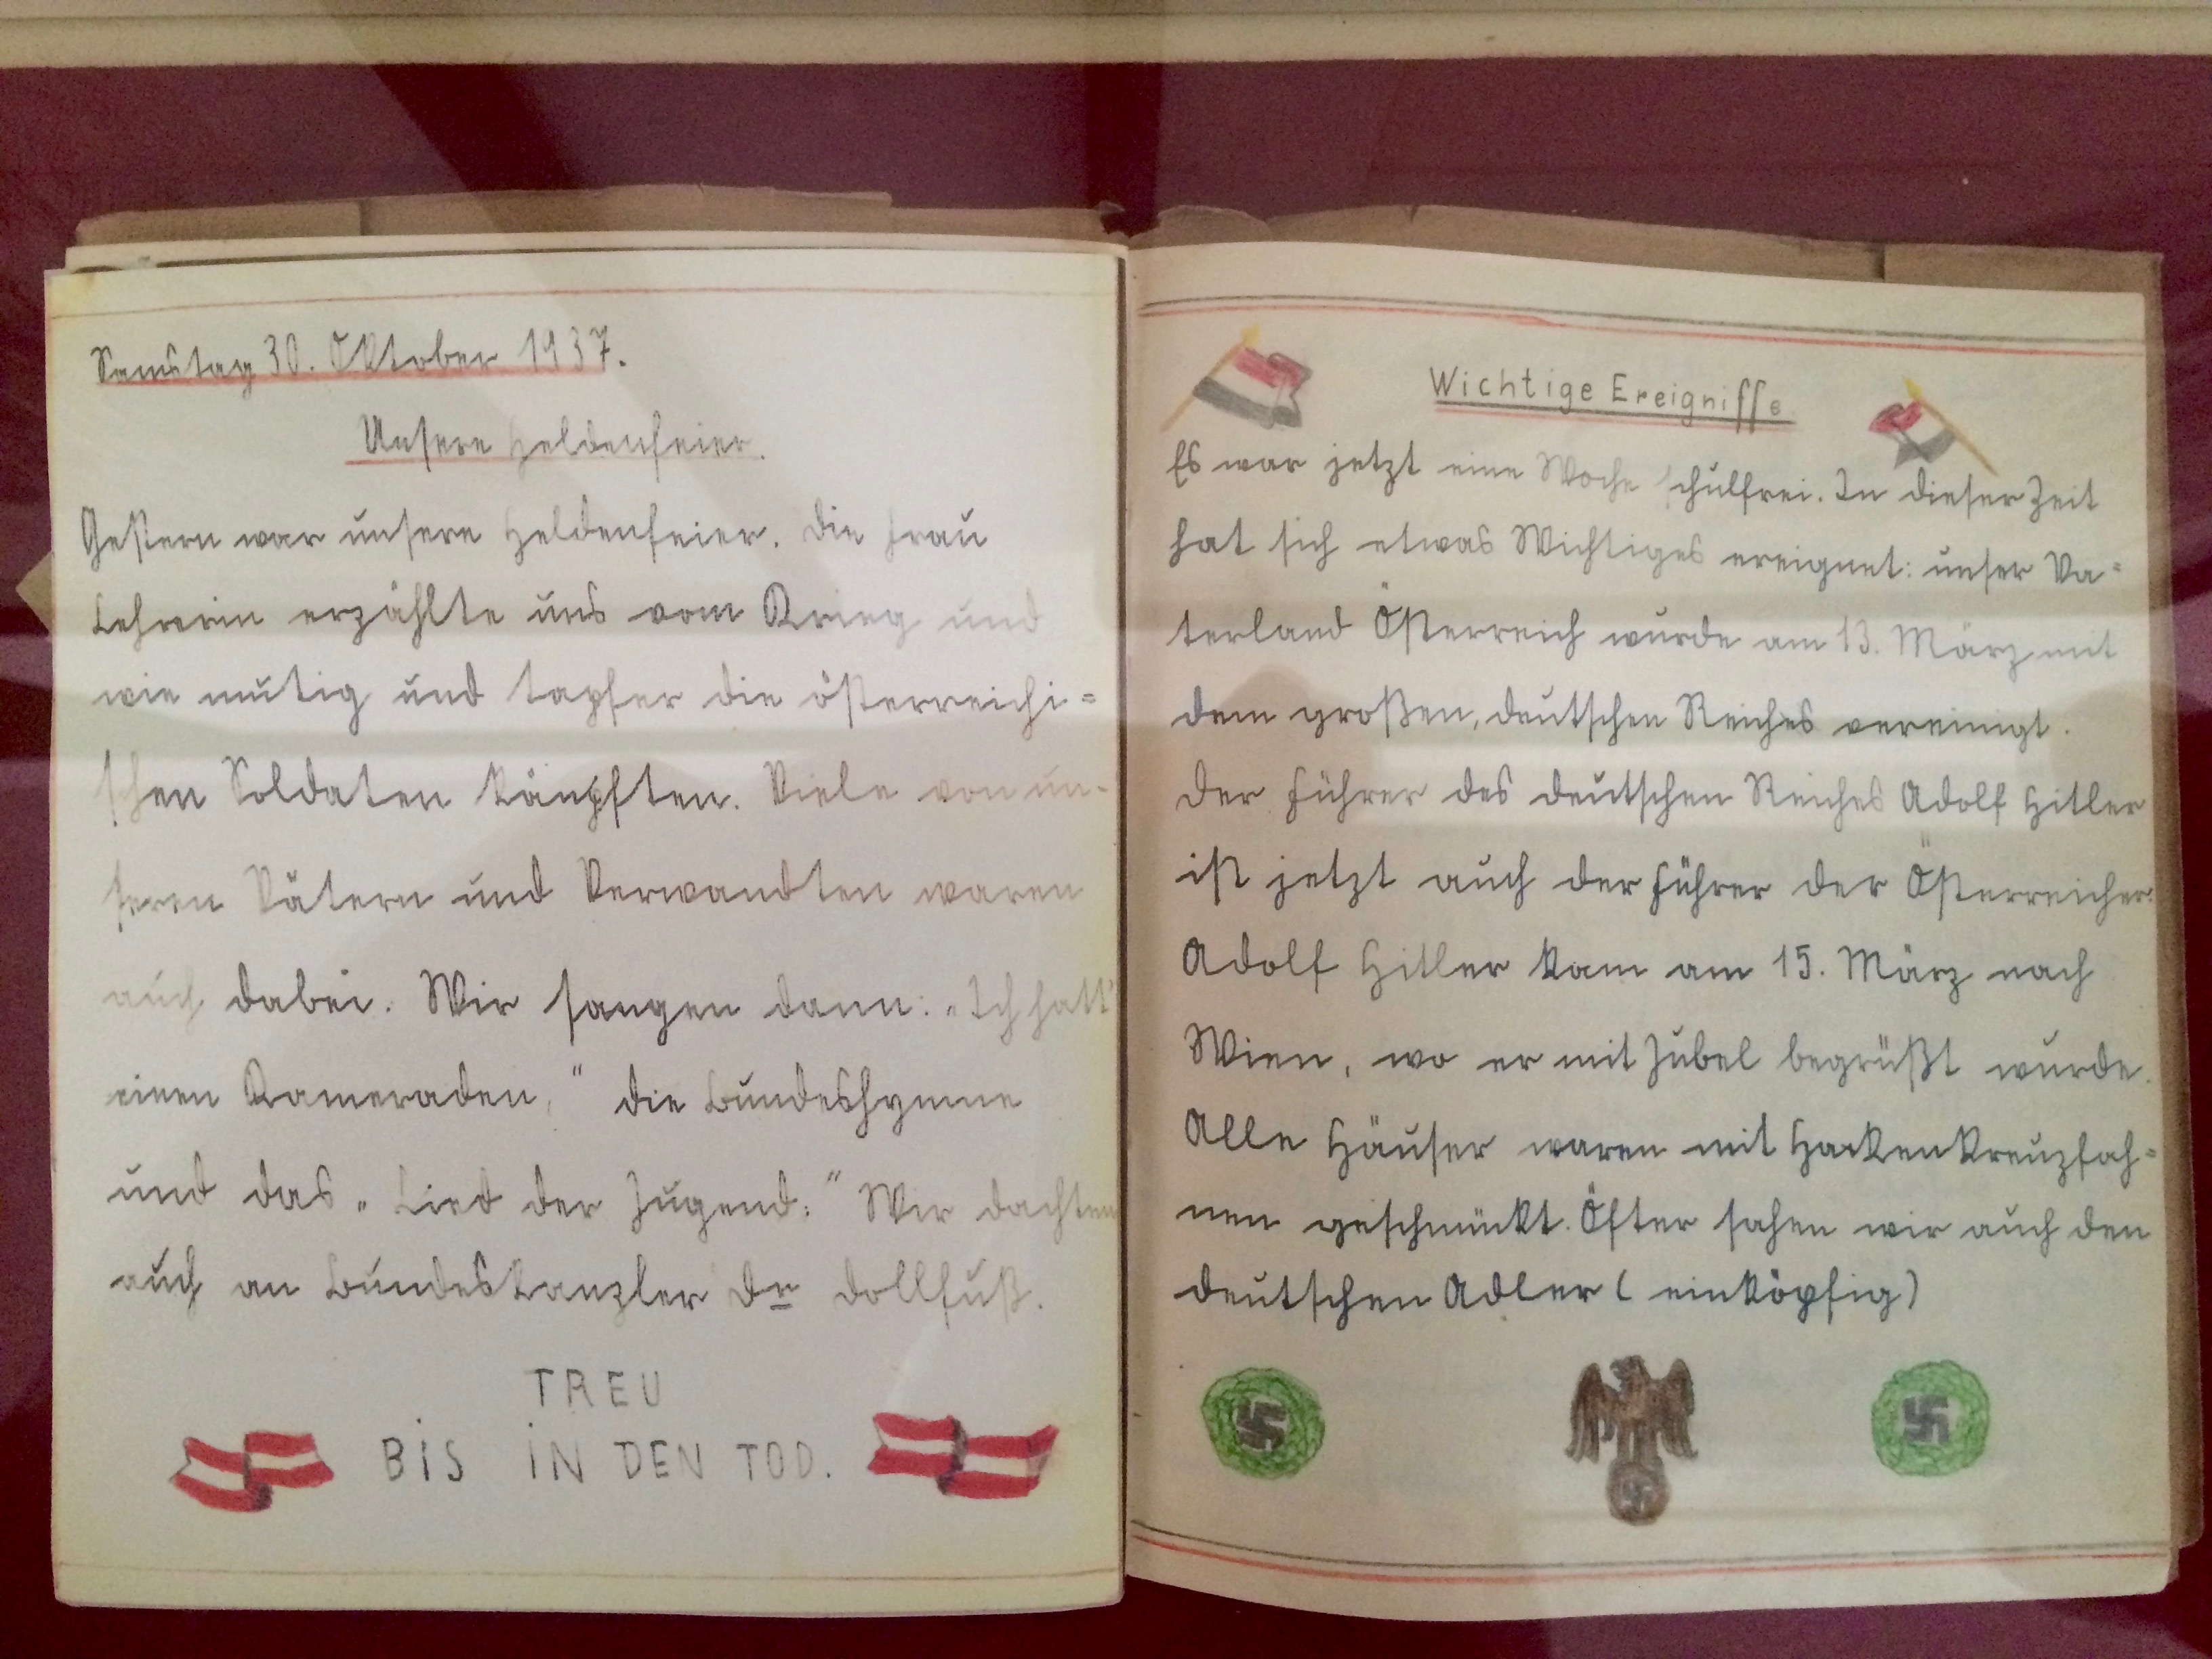 Samstag 30. Oktober 1937.
Unsere Heldenfeier.
Gestern war unsere Heldenfeier. Die Frau
Lehrerin erzählte uns vom Krieg und
wie mutig und tapfer die österreichi=
schen Soldaten kämpften. Viele von un-
seren Vätern und Verwandten waren
auch dabei. Wir sangen dann: „Ich hatt'
einen Kameraden," die Bundeshymne
und das „Lied der Jugend." Wir dachten
auch an Bundeskanzler Dr Dollfuß.
TREU
BIS IN DEN TOD.
Wichtige Ereignisse
Es war jetzt eine Woche schulfrei. In dieser Zeit
hat sich etwas Wichtiges ereignet: unser Va=
terland Österreich wurde am 13. März mit
dem großen, deutschen Reiches vereinigt.
Der Führer des deutschen Reiches Adolf Hitler
ist jetzt auch der Führer der Österreicher.
Adolf Hitler kam am 15. März nach
Wien, wo er mit Jubel begrüßt wurde.
Alle Häuser waren mit Hackenkreuzfah=
nen geschmückt. Öfter sahen wir auch den
deutschen Adler (einköpfig)